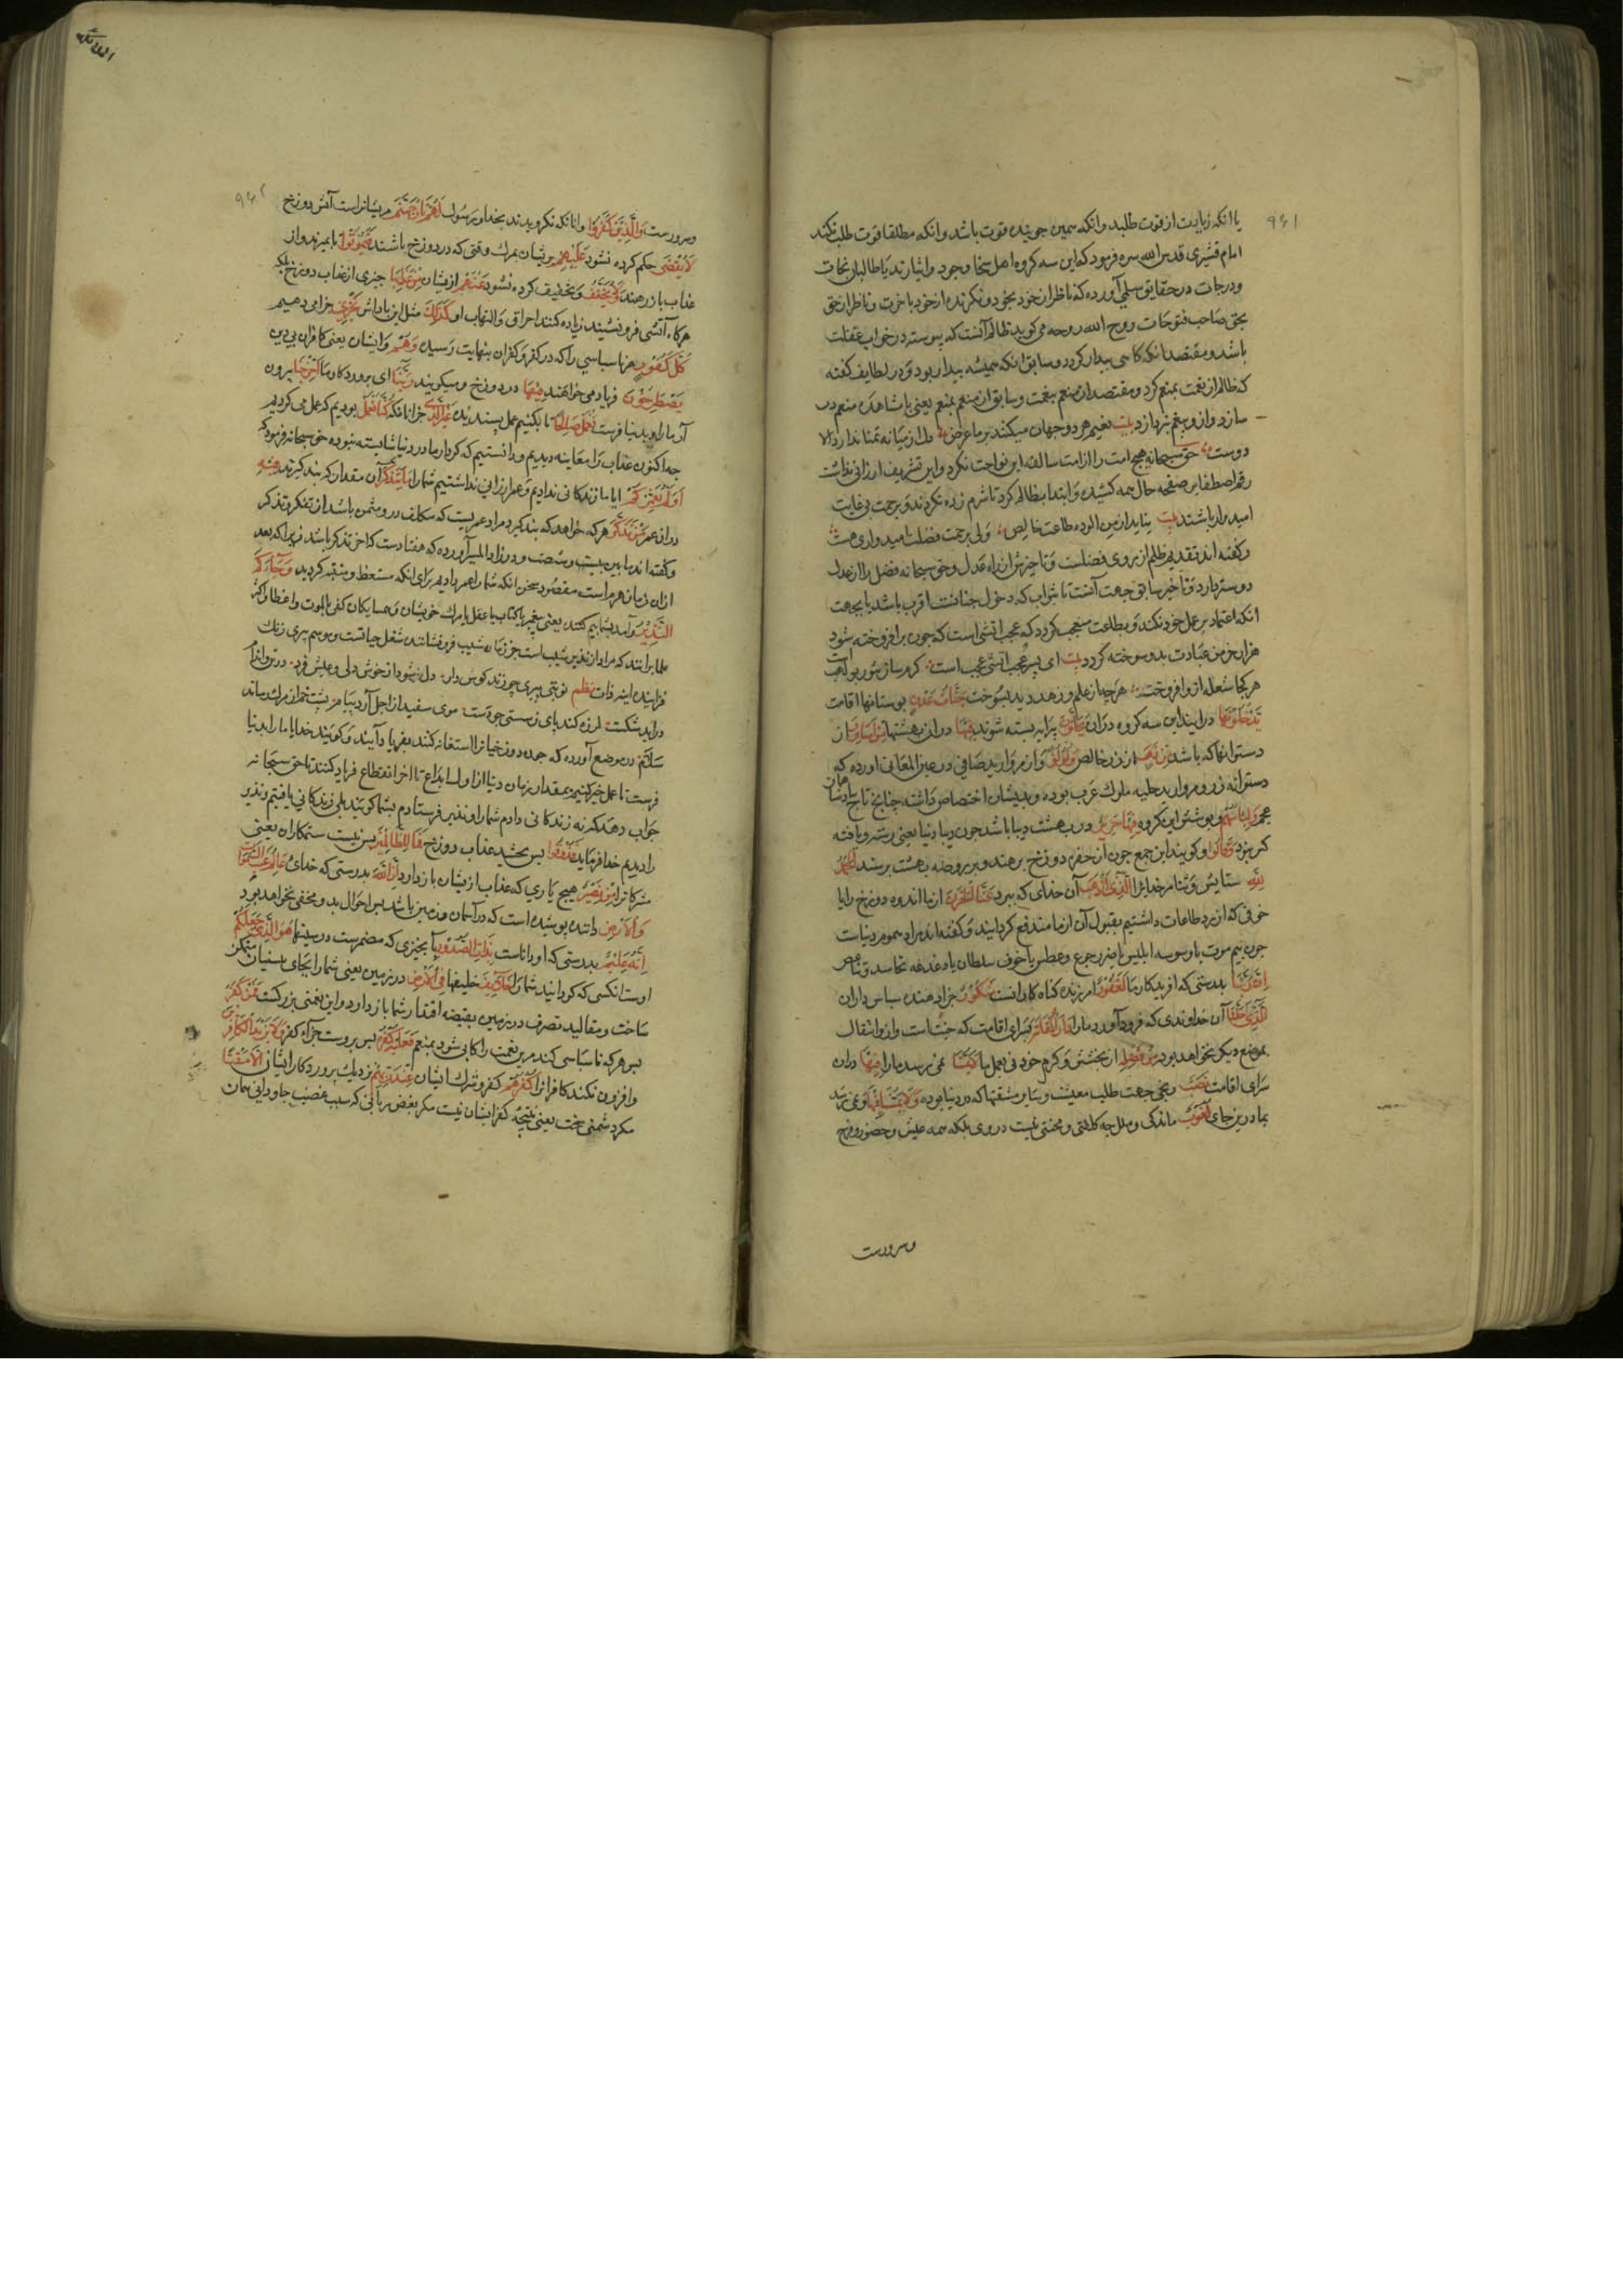 ۹۶۱
یا انکه زیادت از قوت طلبد وانکه همین جوینده قوت باشد وانکه مطلقا قوت طلب نکند
امام قشیری قدس الله سره فرمود که این سه کروه اهل سخا وجود و ایثارند یا طالبان نجات
ودرجات در حقایق سلمی آورده که ناظر از خود بخود ونکرنده از خود باخرت وناظر از حق
بحق صاحب فتوحات روح الله روحه می کوید ظالم آنست که پیوسته در خواب غفلت
باشد ومقتصد انکه کاهی بیدار کردد وسابق انکه همیشه بیدار بود ودر لطایف کفته
که ظالم از نعمت بمنعم کرد ومقتصد از منعم بنعمت وسابق از منعم بمنعم یعنی با مشاهده منعم در
سازد واز و بنعم نپردازد بیت نعیم هر دو جهان میکنند بر ما عرض دل از میانه تمنا ندارد الا
دوست حق سبحانه هیچ امت را از امت سالفه این نواخت نکرد واین تشریف ارزانی نداشت
رقم اصطفا بر صفحه حال همه کشید وابتدا بظالم کرد تا شرم زده نکردند وبرحمت بی غایت
امیدوار باشند بیت نیاید از من الوده طاعت خالص ولی برحمت فضلت امیدواری هست
وکفته اند تقدیم ظلم از روی فضلست وتاخیرش از راه عدل وحق سبحانه فضل را از عدل
دوستر دارد وتاخیر سابق جهت آنست تا بثواب که دخول جنانست اقرب باشد یا بجهت
انکه اعتماد بر عمل خود نکند وبطاعت معجب نکردد که عجب اتشی است که چون برافروخته شود
هزار خرمن عبادت بدو سوخته کردد بیت ای پسر عجب اتشی عجب است کرم ساز تنور بو لهب است
هر کجا شعله ازو افروخت هر چه از علم وزهد دید بسوخت جنات عدن بوستانها اقامت
یدخلونها درایند این سه کروه دران یحلون پیرایه بسته شوند فیها دران بهشتها من اساور از
دستوانها که باشد من ذهب از زر خالص ولؤلؤا واز مروارید صافی در عین المعانی اورده که
دستوانه زر ومروارید حلیه ملوک عرب بوده وبدیشان اختصاص داشته چنانچ تاج پادشاهان
عجم ولباسهم وپوشش این کروه فیها حریر در بهشت دیبا باشد چون دیبا دنیا یعنی رشته وبافته
کر نبود وقالوا وکویند این جمع چون از حفره دوزخ برهند وبر روضه بهشت برسند الحمد
لله ستایش وثنا مر خدایرا الذی اذهب آن خدای که ببرد عنا الحزن از ما اندوه دوزخ را یا
خوفی که از رد طاعات داشتیم بقبول آن از ما مندفع کردانید وکفته اند مراد هموم دنیاست
چون بیم موت یا وسوسه ابلیس یا ضرر جوع وعطش یا خوف سلطان یا دغدغه تحاسد وتباغض
ان ربنا بدرستی که افریدکار ما لغفور امرزنده کناه کارانست شکور جزا دهنده سپاس داران
الذی احلنا آن خداوندی که فرود آورد ما را دار المقامة بسرای اقامت که جنت است وازو انتقال
بموضع دیکر نخواهد بود من فضله از بخشش وکرم خود نی بعمل ما لا یمسنا نمی رسد ما را فیها دران
سرای اقامت نصب رنجی جهت طلب معیشت وسایر مشقتها که در دنیا بوده ولا یمسنا فیها ونمی رسد
بما درین جای لغوب ماندکی وملال چه کلفتی ومحنتی نیست در وی بلکه همه عیش وحضور وفرح
وسرورست
۹۶۲
وسرورست والذین کفروا وانانکه نکرویدند بخدا ورسول لهم نار جهنم مریشانراست آتش دوزخ
لا یقضی حکم کرده نشود علیهم بریشان بمرک وقتی که در دوزخ باشند فیموتوا تا بمیرند واز
عذاب باز رهند ولا یخفف وتخفیف کرده نشود عنهم ازیشان من عذابها چیزی از عذاب دوزخ بلکه
هر کاه آتشی فرو نشیند زیاده کنند احراق والتهاب او کذلک مثل این پاداش نجزی جزا می دهیم
کل کفور هر ناسپاسی را که در کفر وکفران بنهایت رسیده وهم وایشان یعنی کافران بی دین
یصطرخون فریاد می خواهند فیها در دوزخ ومیکویند ربنا ای پروردکار ما اخرجنا بیرون
آر ما را وبدنیا فرست نعمل صالحا تا بکنیم عمل پسندیده غیر الذی جز انانکه کنا نعمل بودیم که عمل می کردیم
چه اکنون عذاب را معاینه دیدیم ودانستیم که کردار ما در دنیا شایسته نبوده حق سبحانه فرمود که
اولم نعمرکم ایا ما زندکانی ندادیم وعمر ارزانی نداشتیم شما را ما یتذکر آن مقدار که پند کیرند فیه
دران عمر من تذکر هر که خواهد که پند کیرد مراد عمریست که مکلف درو متمکن باشد از تفکر وتذکر
وکفته اند ما بین بیست وشصت ودر زاد المسیر آورده که هفتادست که اخر تذکر باشد زیرا که بعد
ازان زمان هرم است مقصود سخن انکه شما را عمر دادیم برای انکه متعظ ومتنبه کردید وجاءکم
النذیر وآمد بشما بیم کننده یعنی پیغمبر یا کتاب یا عقل یا مرک خویشان وهمسایکان کفی بالموت واعظا واکثر
علما برانند که مراد از نذیر شیب است
فزاینده اینه ذات نظم نوبتی پیری چو زند کوس درد دل شود از خوش دلی وعیش فرد در تن واندام
دراید شکست لرزه کند پای ز سستی چو دست موی سفید از اجل آرد پیام پشت خم از مرک رساند
سلام در موضح آورده که چون دوزخیانرا استغاثه کنند بفریاد آیند وکویند خدایا ما را بدنیا
فرست تا عمل خیر کنیم بمقدار زمان دنیا از اول ابداع تا اخر انقطاع فریاد کنند تا حق سبحانه
جواب دهد که نه زندکانی دادم شما را ونذیر فرستادم بشما کویند بلی زندکانی یافتیم ونذیر
را دیدیم خدا فرماید فذوقوا پس بچشید عذاب دوزخ فما للظالمین پس نیست ستمکاران یعنی
مشرکانرا من نصیر هیچ یاری که عذاب ازیشان باز دارد ان الله بدرستی که خدای عالم غیب السموات
والارض داننده پوشیده است که در آسمان وزمین باشد پس احوال بد ومخفی نخواهد بود
انه علیم بدرستی که او داناست بذات الصدور بآنچیزی که مضمرست در سینها هو الذی جعلکم
اوست انکسی که کردانید شما را خلایف خلیفها فی الارض در زمین یعنی شما را بجای پیشینیان متمکن
ساخت ومقالید تصرف در زمین بقبضه اقتدار شما باز داد واین نعمتی بزرکست فمن کفر
پس هر که ناسپاسی کند مرین نعمت را فعلیه کفره پس بروست جزاء کفر ولا یزید الکافرین
وافزون نکند کافرانرا کفرهم کفر وشرک ایشان عند ربهم نزدیک پروردکار ایشان الا مقتا
مکر دشمنی سخت یعنی نتیجه کفر ایشان نیست مکر بغض ربانی که سبب غضب جاودانی همان